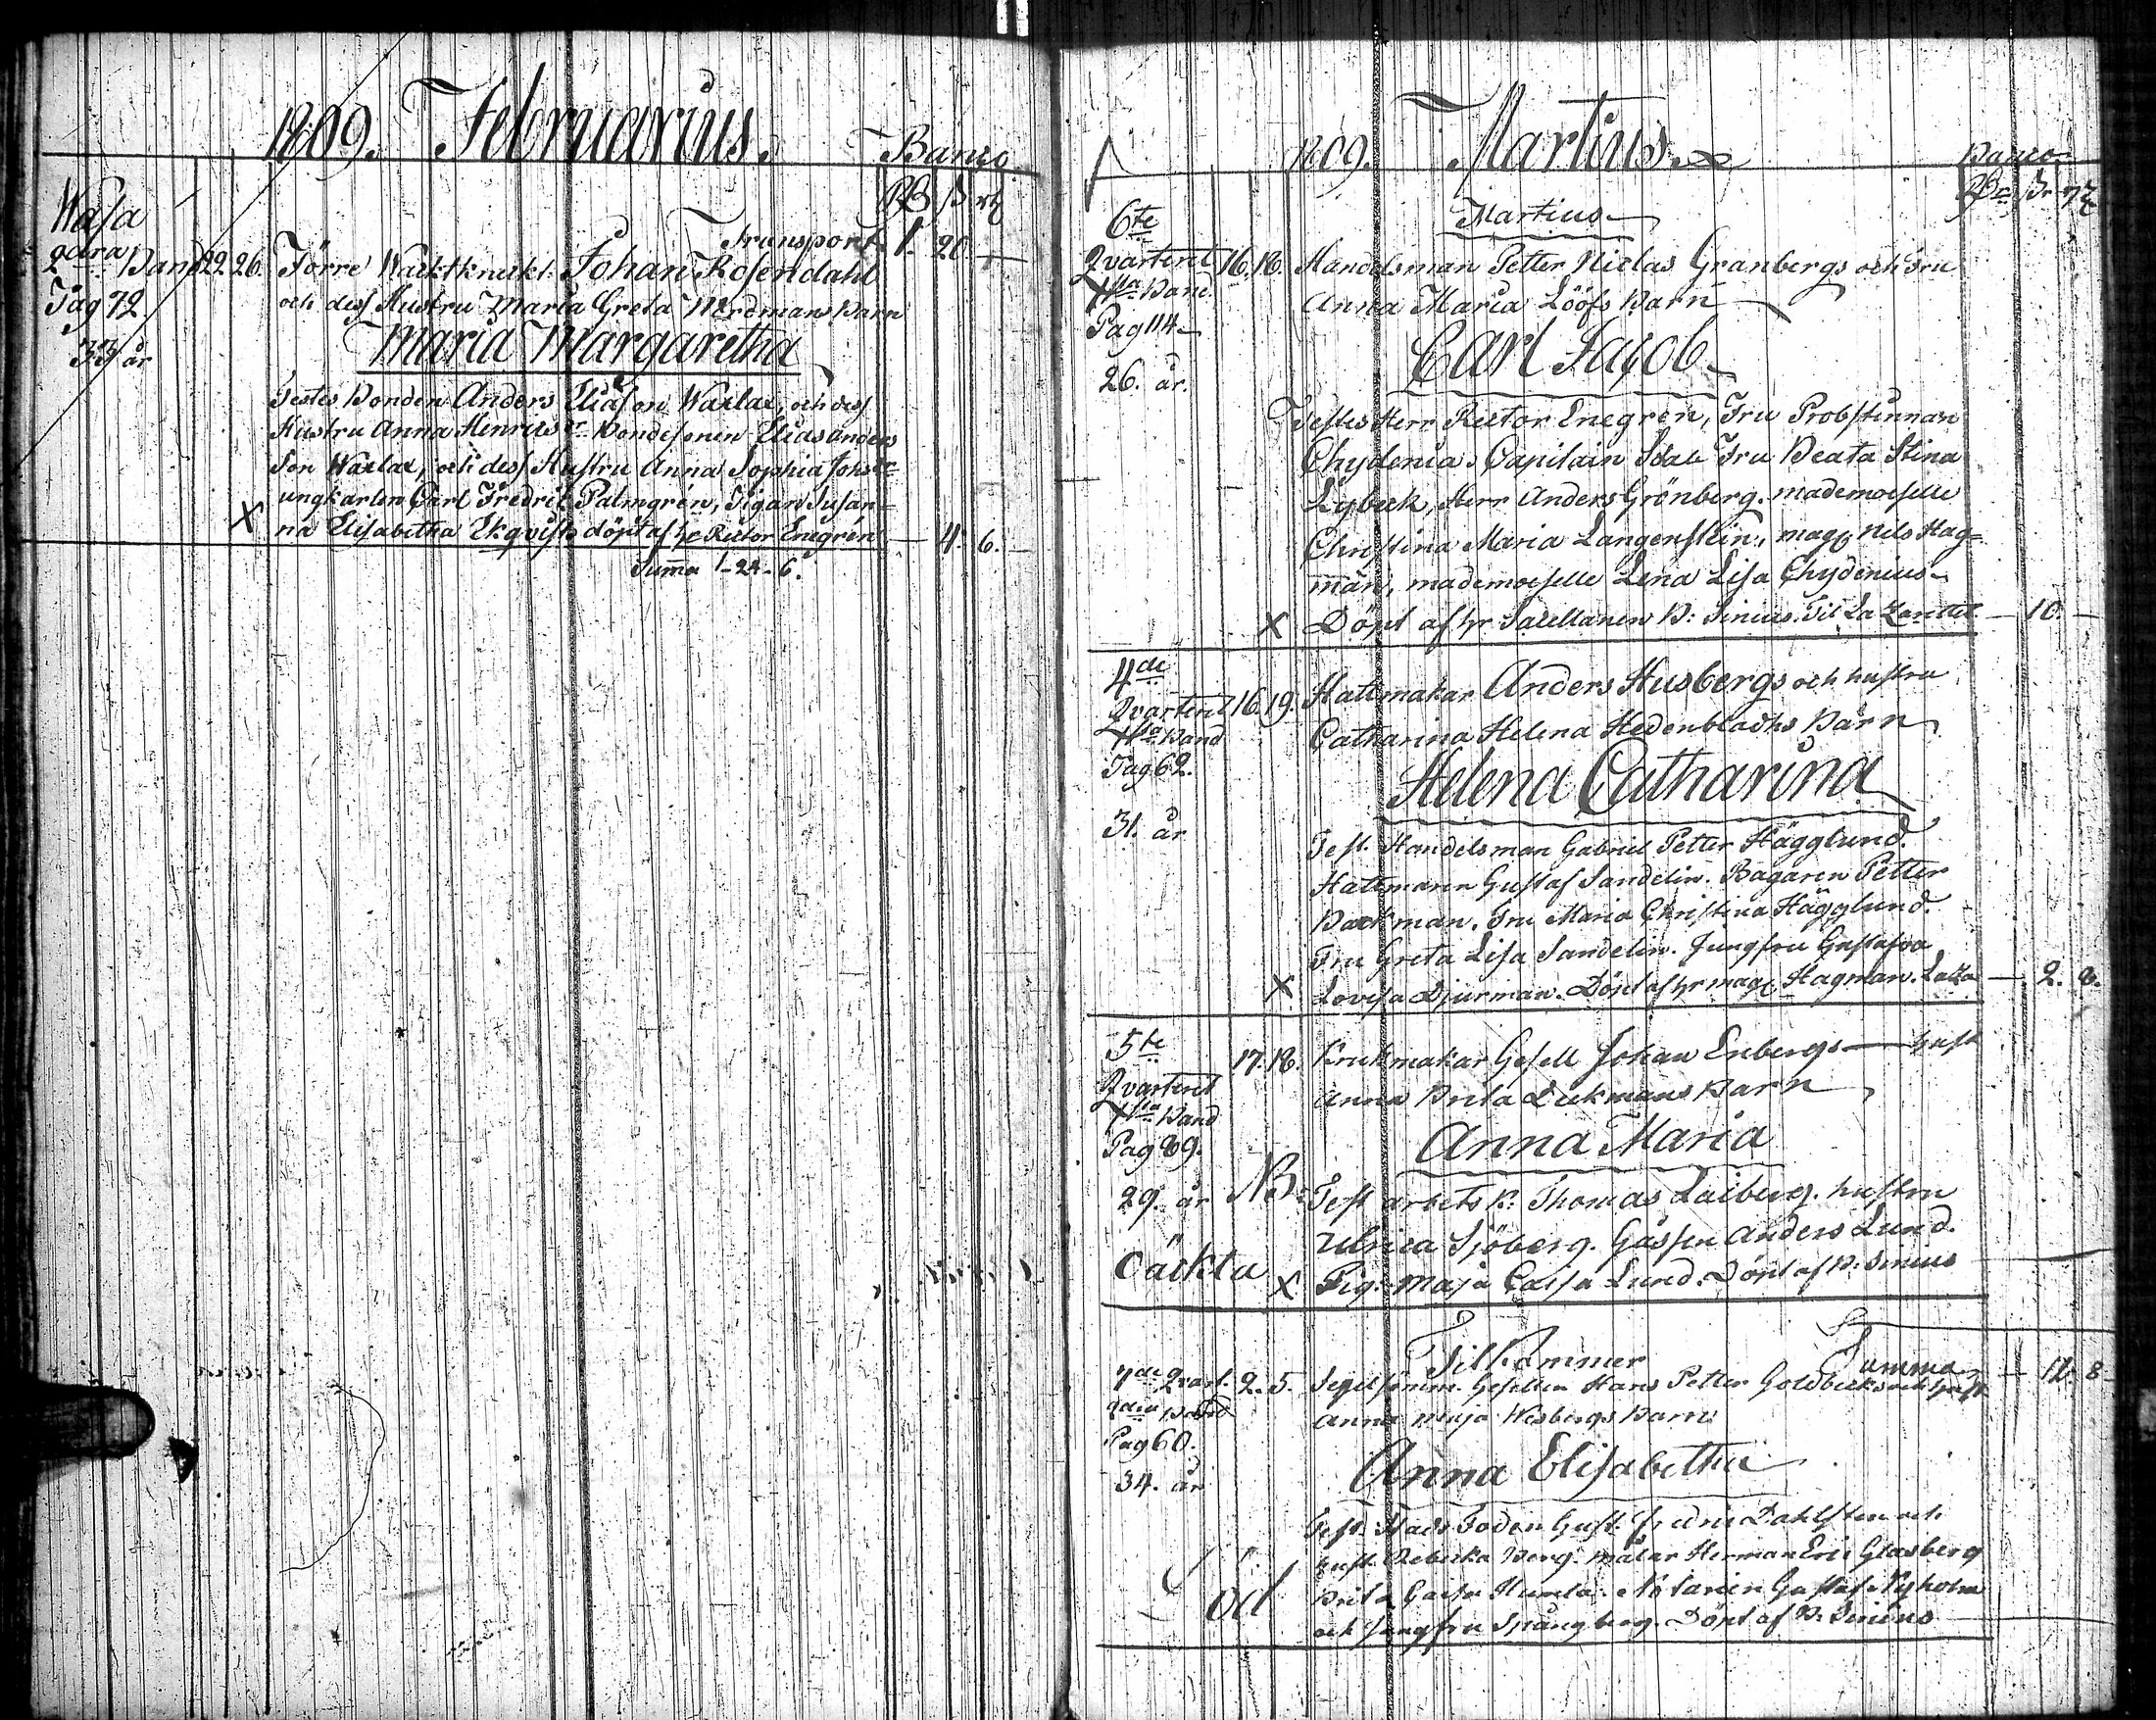 1809. Februarius.
Banco
RD ß rst
Wasa
2dra Band
Pag 72
33 år
22 26.
Transport 1. 20. —
Förre Wacktknekt. Johan Rosendahl
och dess Hustru Maria Greta Nerdmans Barn
Maria Margaretha
Testes Bonden Anders Eliason Waxlax, och dess
Hustru Anna Henricsdr Bondesonen Elias Anders
Son Waxlax, och dess Hustru Anna Sophia Johsdr
ungkarlen Carl Fredric Palmgrén, Pigan Susan=
X na Elisabetha Ekqvist döpt af hr Rector Enegrén — 4. 6. —
Summa 1-24-6.
1809. Martius
Banco
Rdr ßr rst
Martius
6te
Qvarteret
1sta Band.
Pag 114
26. år.
16. 18. Handelsman Petter Niclas Granbergs och Fru
Anna Maria Lööfs Barn
Carl Jacob
Testes Herr Rector Enegren, Fru Probstinnan
Chydenia. Capitain Fru Beata Stina
Lybeck, Herr Anders Grönberg. mademoiselle
Christina Maria Langenstein, mag. Nils Hag=
man, mademoiselle Lena Lisa Chydenius
X Döpt af hr Sacellanen B: Sinius. Til Lazarettet — 10. —
4de
Qvarteret
1sta Band
Pag 62.
31. år
16. 19. Hattmakar Anders Husbergs och hustru
Catharina Helena Hedenbladhs Barn
Helena Catharina
Test. Handelsman Gabriel Petter Hägglund.
Hattmaren Gustaf Sandelin. Bagaren Petter
Backman. Fru Maria Christina Hägglund.
Fru Greta Lisa Sandelin. Jungfru Gustafva
X Lovisa Djurman. Döpt af hr mag. Hagman. Laza — 2. 8.
5te
Qvarteret
1sta Band
Pag 89.
29. år
Oäckta
17. 18. Krukmakar Gesell Johan Enbergs — Hust
Anna Brita Leekmans Barn
Anna Maria
NB: Test arbets k: Thomas Laiberg. hustru
Ulrica Sjöberg. Gässen Anders Lund.
X Pig: Maja Caisa Lund. Döpt af B. Sinius
Summa — 12. 8
Tilkommer
7de Qvart.
2dra Band
Pag 60.
34. år
Död
2. 5. Segelsömm. Gesellen Hans Petter Goldbecks och Hust
Anna Maja Wisbergs Barn
Anna Elisabetha
Test. Stads Foden Gust. Fredric Dahlsten och
hust. Rebecka Berg. målar Herman Eric Glasberg
Brita Caisa Humla. Notarien Gustaf Nyholm
och Jungfru Spångberg. Döpt af B. Sinius